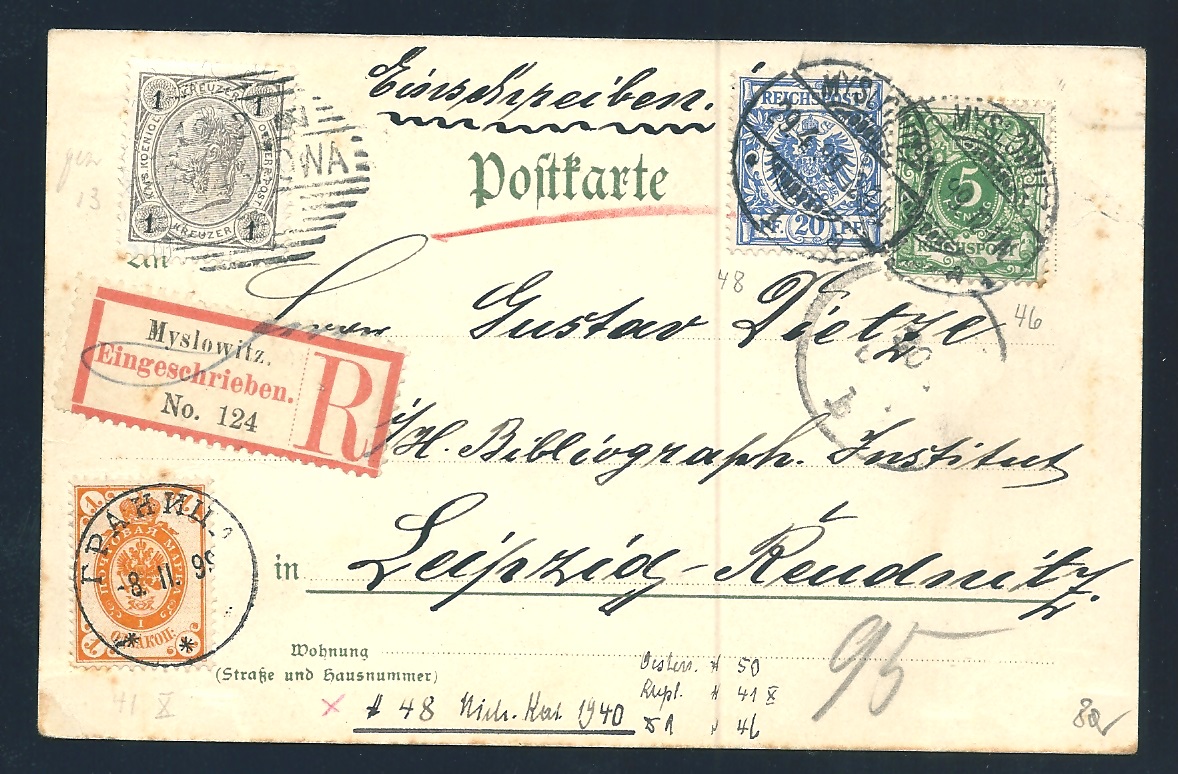 Einschreiben.
Postkarte
1 KREUZER 1
KAIS. KOENIGL. OESTERR. POST
1 KREUZER 1
REICHSPOST
PF. 20 PF.
5
PFENNIG
REICHSPOST
MYSLOWITZ
MYSLOWITZ
48
46
13
An
Herrn Gustav Dietze
Myslowitz.
Eingeschrieben.
No. 124
R
i/H. Bibliograph. Institut
in Leipzig-Reudnitz
1
ПОЧТОВАЯ МАРКА
ОДНА КОП.
ГРАНИЦА
-8. II. 99
Wohnung
(Straße und Hausnummer)
95
Oesterr. # 50
41 X
# 48 Mich. Kat 1940
46
41 X
80